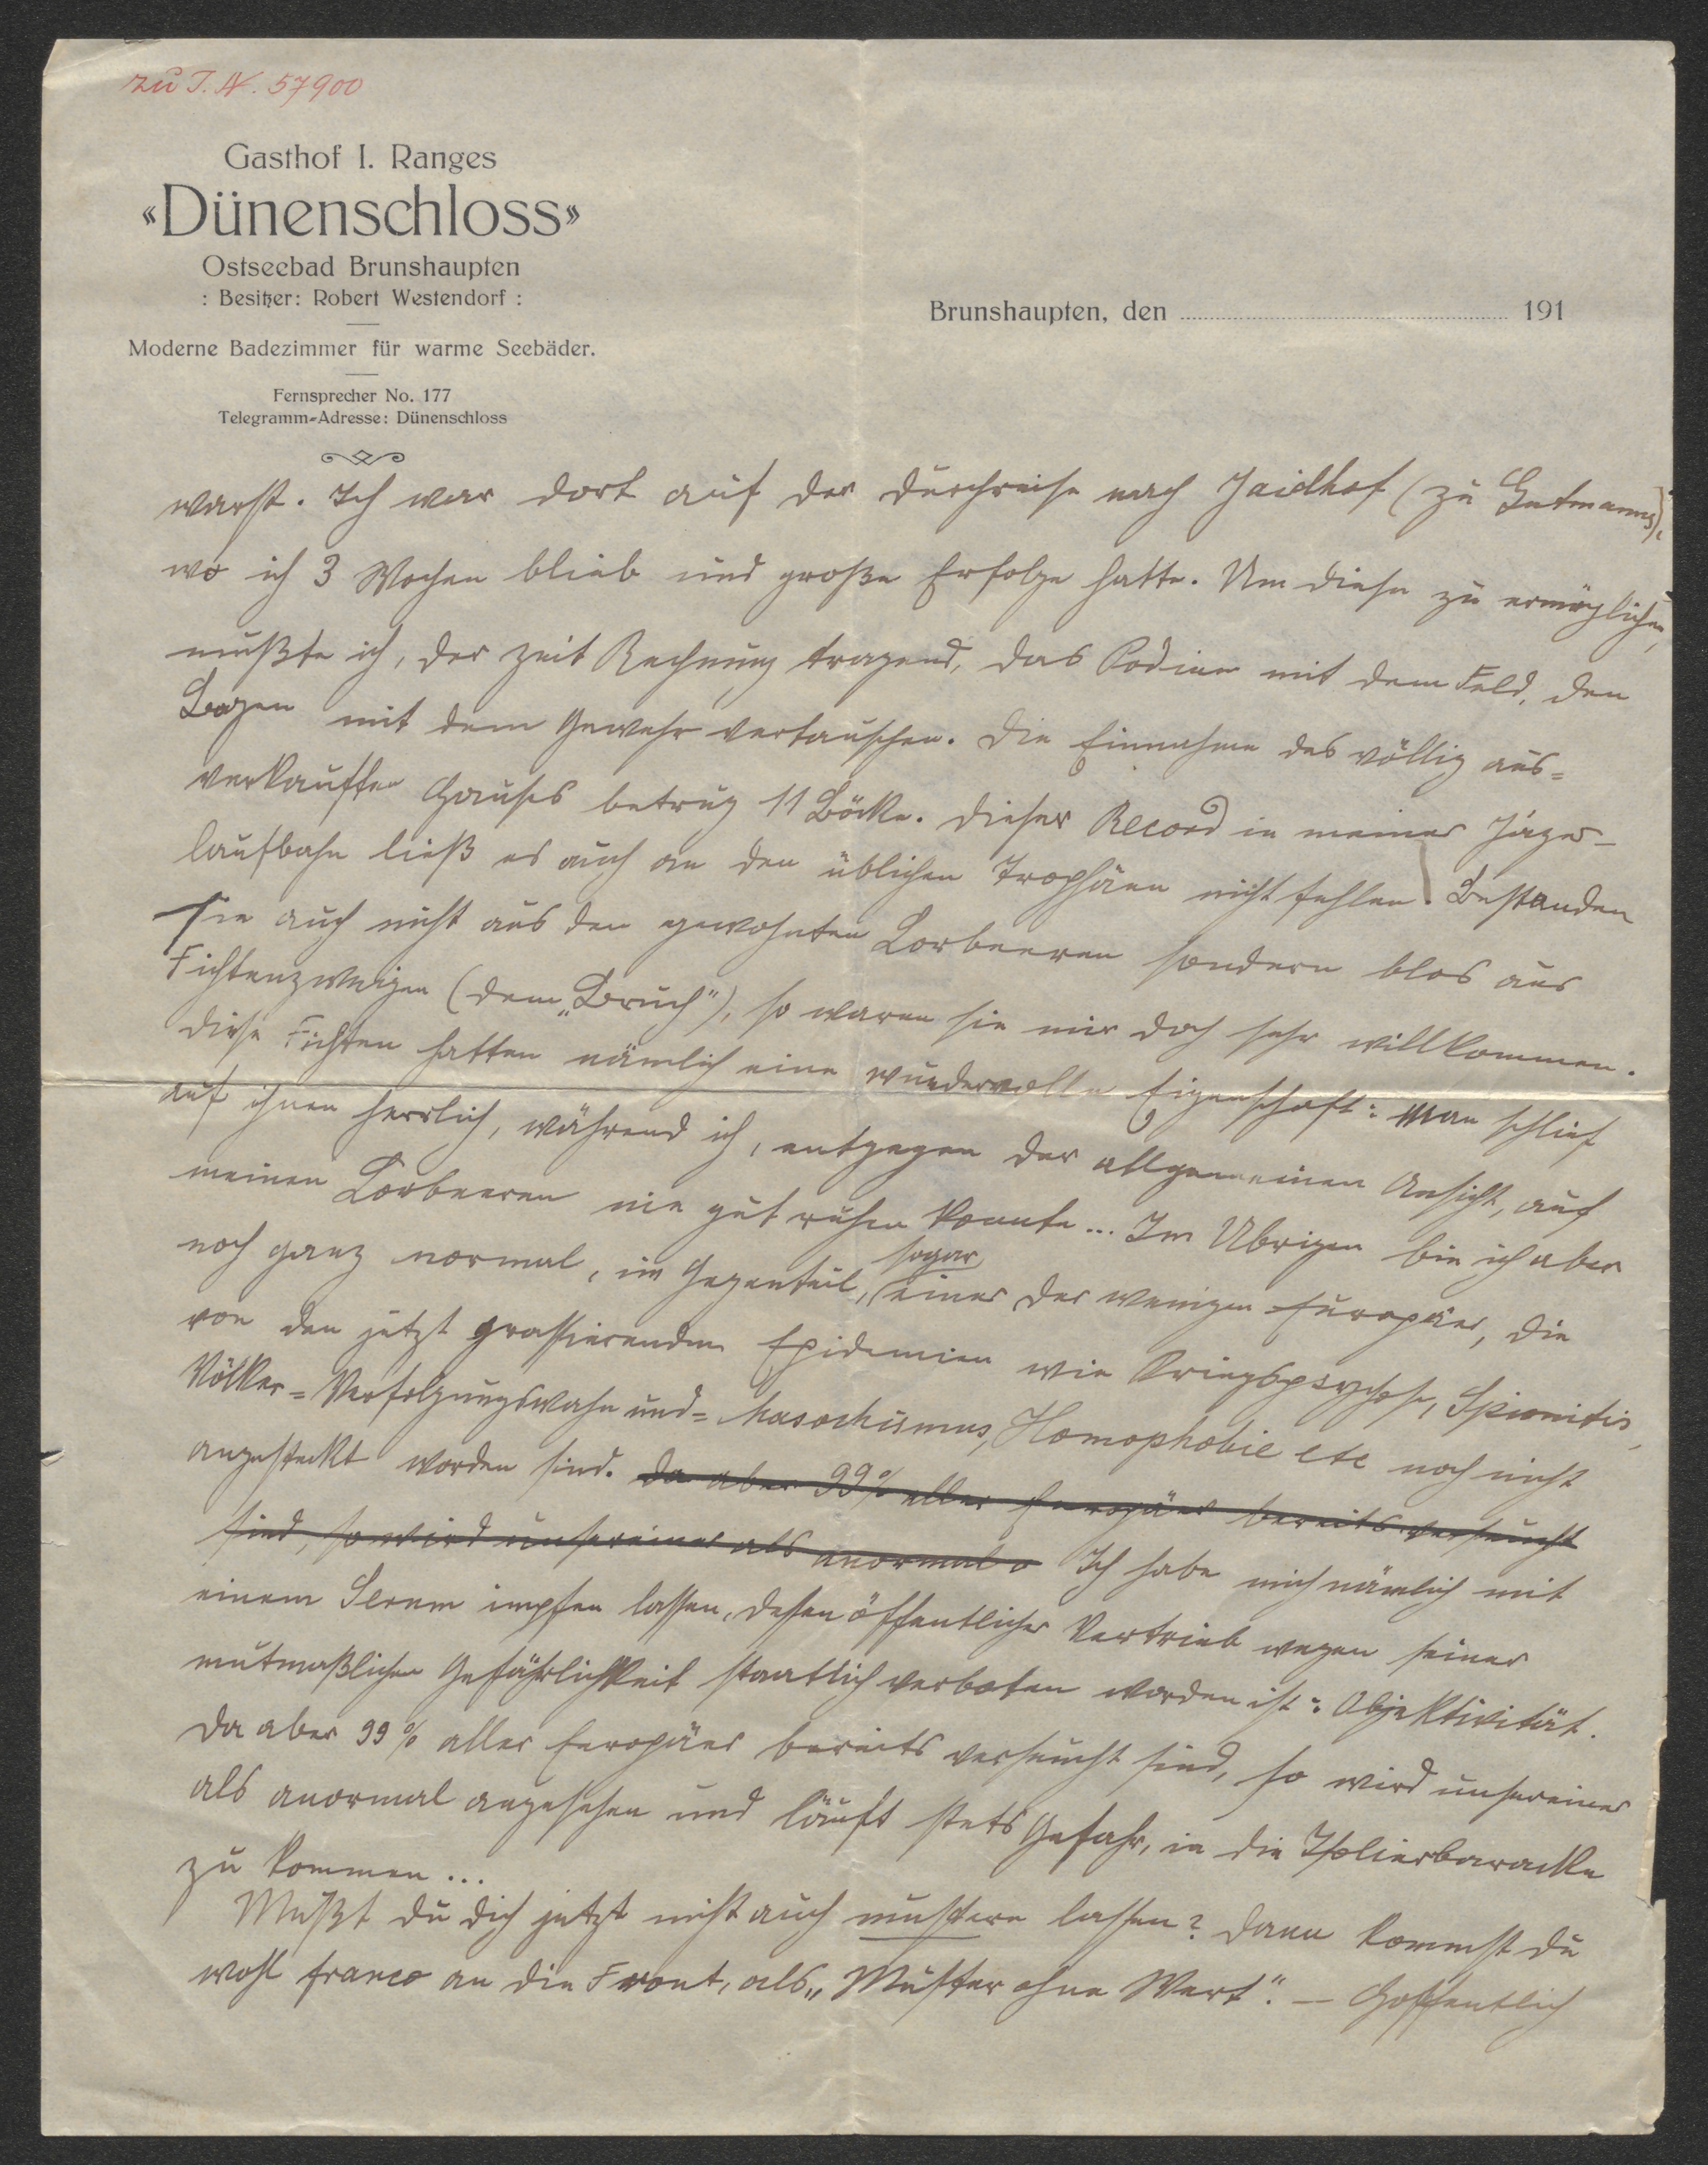 zu I. N. 57900
Gasthof I. Ranges
«Dünenschloss»
Ostseebad Brunshaupten
: Besitzer: Robert Westendorf :
Moderne Badezimmer für warme Seebäder.
Fernsprecher No. 177
Telegramm-Adresse: Dünenschloss
Brunshaupten, den 191
warst. Ich war dort auf der Durchreise nach Jaidhof (zu Gutmanns),
wo ich 3 Wochen blieb und große Erfolge hatte. Um diese zu ermöglichen,
mußte ich, der Zeit Rechnung tragend, das Podium mit dem Feld, den
Bogen mit dem Gewehr vertauschen. Die Einnahme des völlig aus=
verkauften Hauses betrug 11 Böcke. Dieser Record in meiner Jäger-
laufbahn ließ es auch an den üblichen Trophäen nicht fehlen. Bestanden
sie auch nicht aus den gewohnten Lorbeeren sondern blos aus
Fichtenzweigen (dem „Bruch"), so waren sie mir doch sehr willkommen.
Diese Fichten hatten nämlich eine wundervolle Eigenschaft: Man schlief
auf ihnen herrlich, während ich, entgegen der allgemeinen Ansicht, auf
meinen Lorbeeren nie gut ruhen konnte... Im Übrigen bin ich aber
noch ganz normal, im Gegenteil, sogar einer der wenigen Europäer, die
von den jetzt grassierenden Epidemien wie Kriegspsychose, Spionitis,
Völker=Verfolgungswahn und =Masochismus, Homophobie etc noch nicht
angesteckt worden sind. Da aber 99% aller Europäer bereits verseucht
sind, so wird unsereiner als anormal a Ich habe mich nämlich mit
einem Serum impfen lassen, dessen öffentlicher Vertrieb wegen seiner
mutmaßlichen Gefährlichkeit staatlich verboten worden ist: Objektivität.
Da aber 99% aller Europäer bereits verseucht sind, so wird unsereiner
als anormal angesehen und läuft stets Gefahr, in die Isolierbaracke
zu kommen...
Mußt du dich jetzt nicht auch mustern lassen? Dann kommst du
wohl franco an die Front, als „Muster ohne Wert". — Hoffentlich